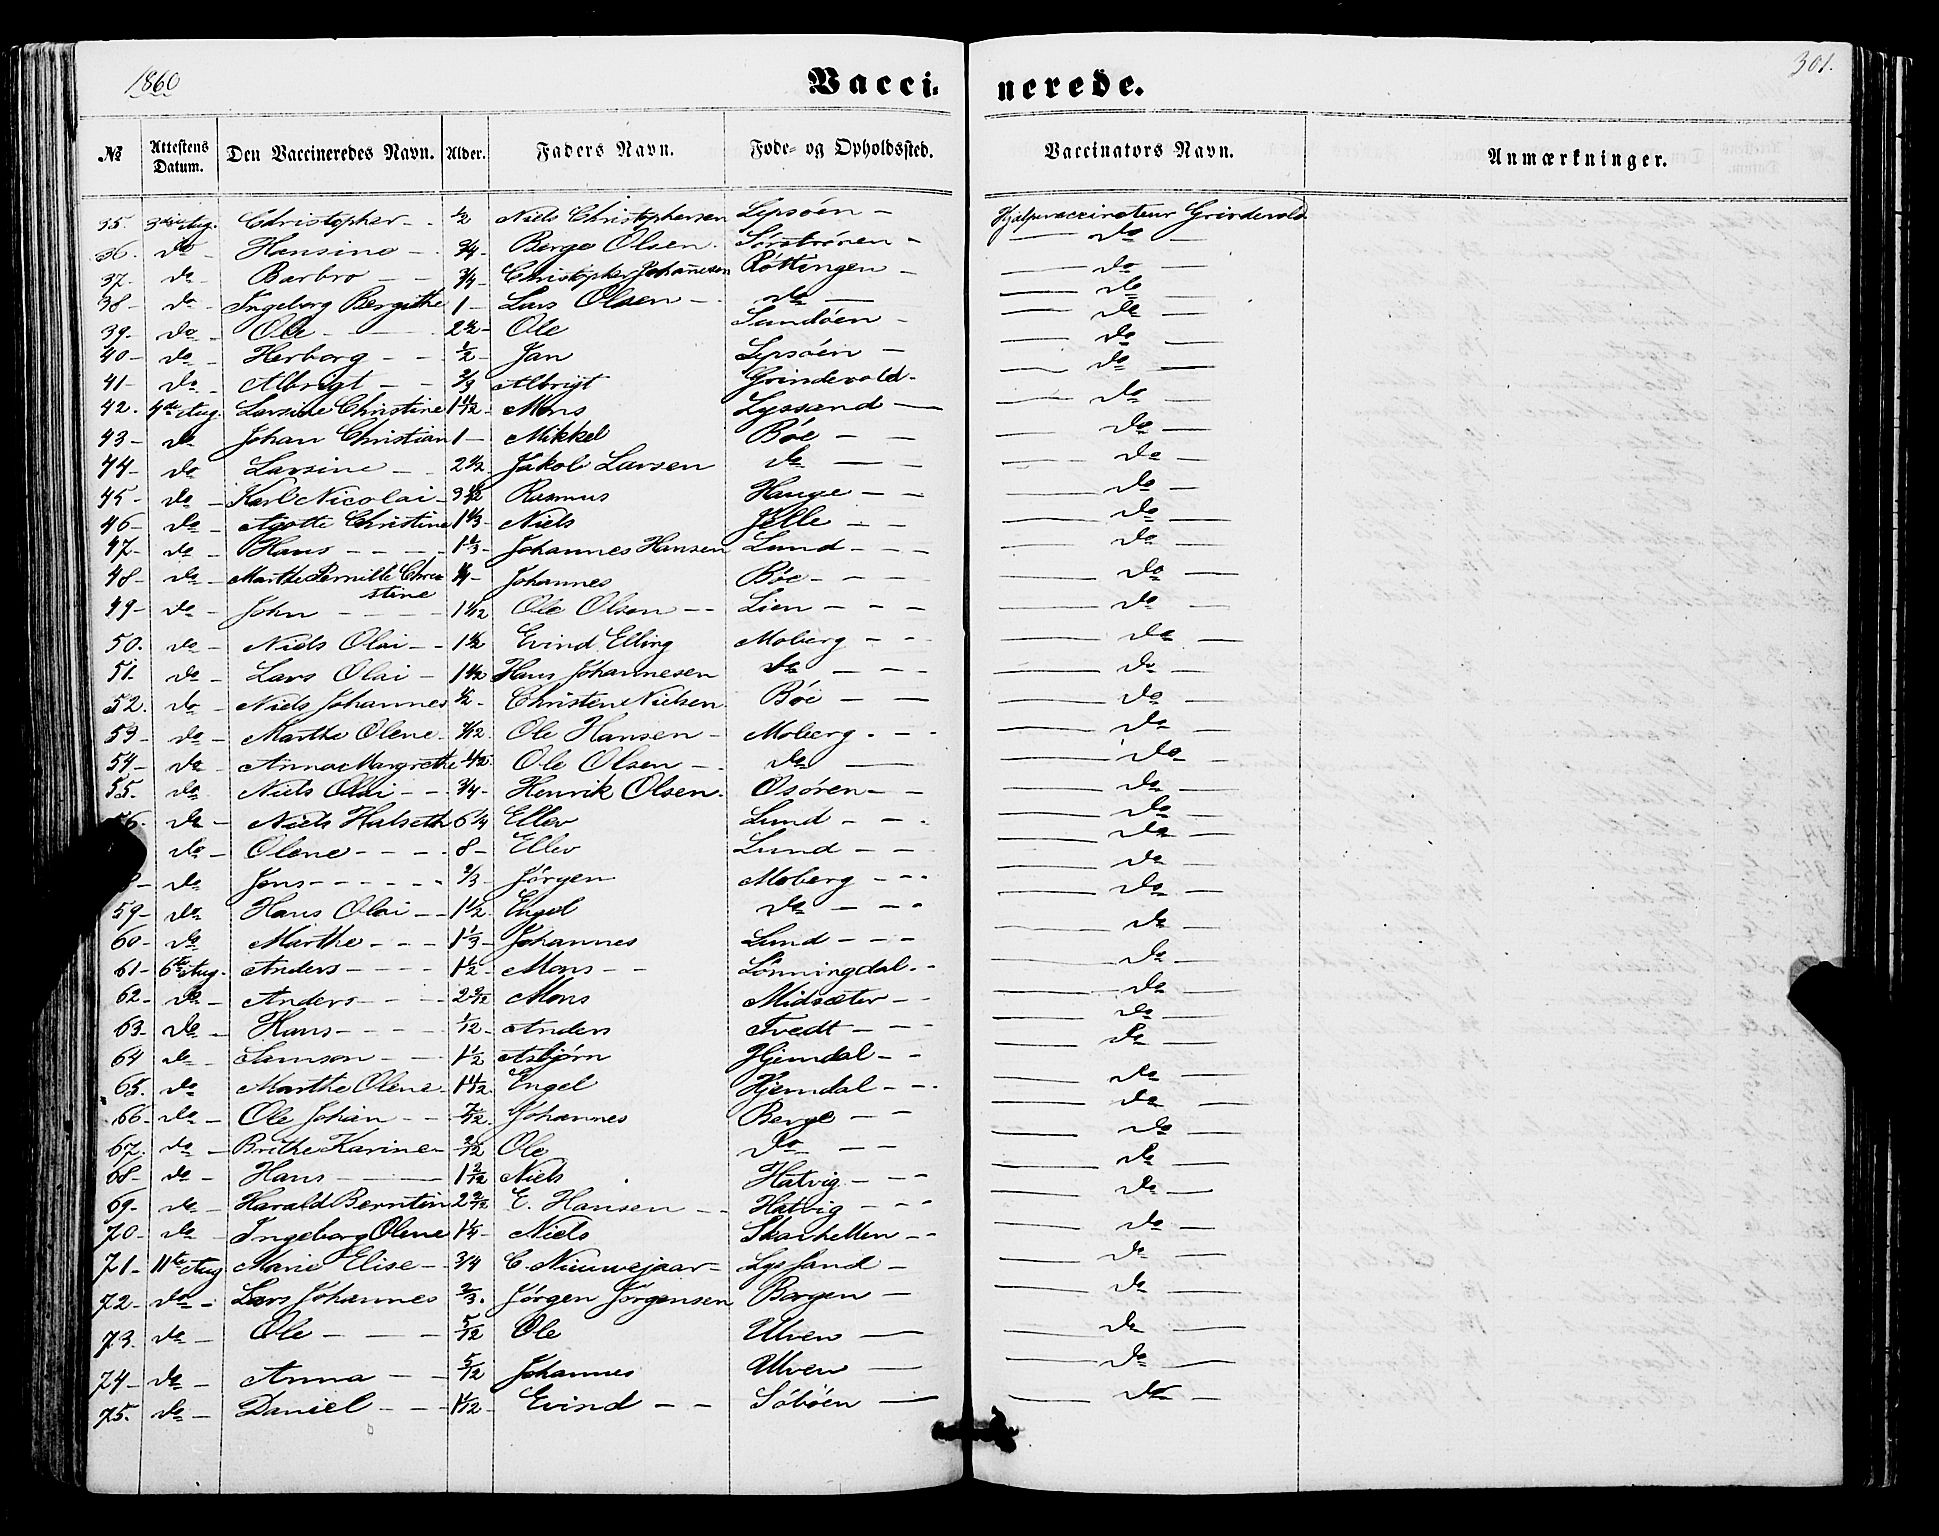 1860
Vacci- nerede.
301.
No Attestens Datum. Den Vaccineredes Navn. Alder. Faders Navn. Føde- og Opholdssted. Vaccinators Navn. Anmærkninger.
35. 3die Aug. Christopher - - 1/2 Niels Christophersen Lepsöen - Hjælpevaccinateur Grindevold
36. do - Hansine - - 3/4 - Berge Olsen. Sörströnen - do -
37. do - Barbro - - 3/4 - Christopher Johannesen Röttingen - do -
38 - do - Ingeborg Bergithe 1 - Lars Olsen - do - do
39 - do - Ole - - Ole Sandöen - do
40 - do - Herborg - - 1/2 - Jan Lepsöen - do
41 - do - Albrigt - - Albrigt Grindevold - do
42. 4de Aug. Larsine Christine Mons Lyssand - do -
43 - do Johan Christian 1 - Mikkel Böe - - do -
44 - do Larsine - - 2 1/2 Jakob Larsen do - - do -
45 - do - Karl Nicolai - Rasmus Hauge - - do -
46 - do - Agotte Christine 1 1/3 - Niels Jelle - - do -
47 - do - Hans - - - - 1 1/3 - Johannes Hansen Lund - - - do -
48 - do - Marthe Pernille Chri-
stine 1/4 - Johannes Böe - - - do -
49 - do - John - - - Ole Olsen - - Lien - - - do -
50. do - Niels Olai - - 1 1/2 Evind Elling Moberg - - do -
51. do - Lars Olai - 1 1/2 Hans Johannesen do - - do -
52. do - Niels Johannes 1/2 - Christen Nielsen Böe - - do -
53 - do - Marthe Olene - Ole Hansen - Moberg - - - do -
54 - do - Anna Margrethe Ole Olsen - - do - do -
55. do - Niels Olai - - 3/4 - Henrik Olsen - Osören - - do -
56. do - Niels Halseth 6 1/4 Ellev Lund - - - do
do - Olene - - - - 8 - Ellev Lund - - do -
8 - do Jens - - - - - 2/3 - Jörgen Moberg - - - do -
59 - do Hans Olai - - 1 1/2 Engel do - - - do -
60 - do Marthe - - - 1 1/3 - Johannes Lund - - - do
61 - 6te Aug. Anders - - - - 1 1/2 - Mons - - Lönningdal - - do -
62 - do - Anders - - - Mons Midsæter - - do
63 - do - Hans - - - - 1/12 - Anders Tvedt - - - do -
64 do - Samson - - - 1 1/2 Asbjørn Hjemdal - - do -
65. do - Marthe Olene Engel Hjemdal - - - do -
66 - do - Ole Johan - - 7/12. Johannes Berge - - do -
67. do - Brithe Karine - Ole do - - do -
68 - do - Hans - - 1 2/12 Niels Hatvig - - - do -
69 - do - Harald Berntin 2 2/12 E. Hansen - - Hatvig - - - do -
70 - do - Ingeborg Olene 1 1/4 - Niels Skarhellen - - do -
71 - 11te Aug Marie Elise - - 3/4 C. Nieuwejaar - Lys sand - do -
72 - do - Lars Johannes 2/3. Jörgen Jörgensen Borgen - do -
73. do - Ole - - - 5/12 Ole Ulven - do -
74 - do - Anna - - 5/12 Johannes Ulven - do -
75. do - Daniel - - - Evind - - Söböen - do -